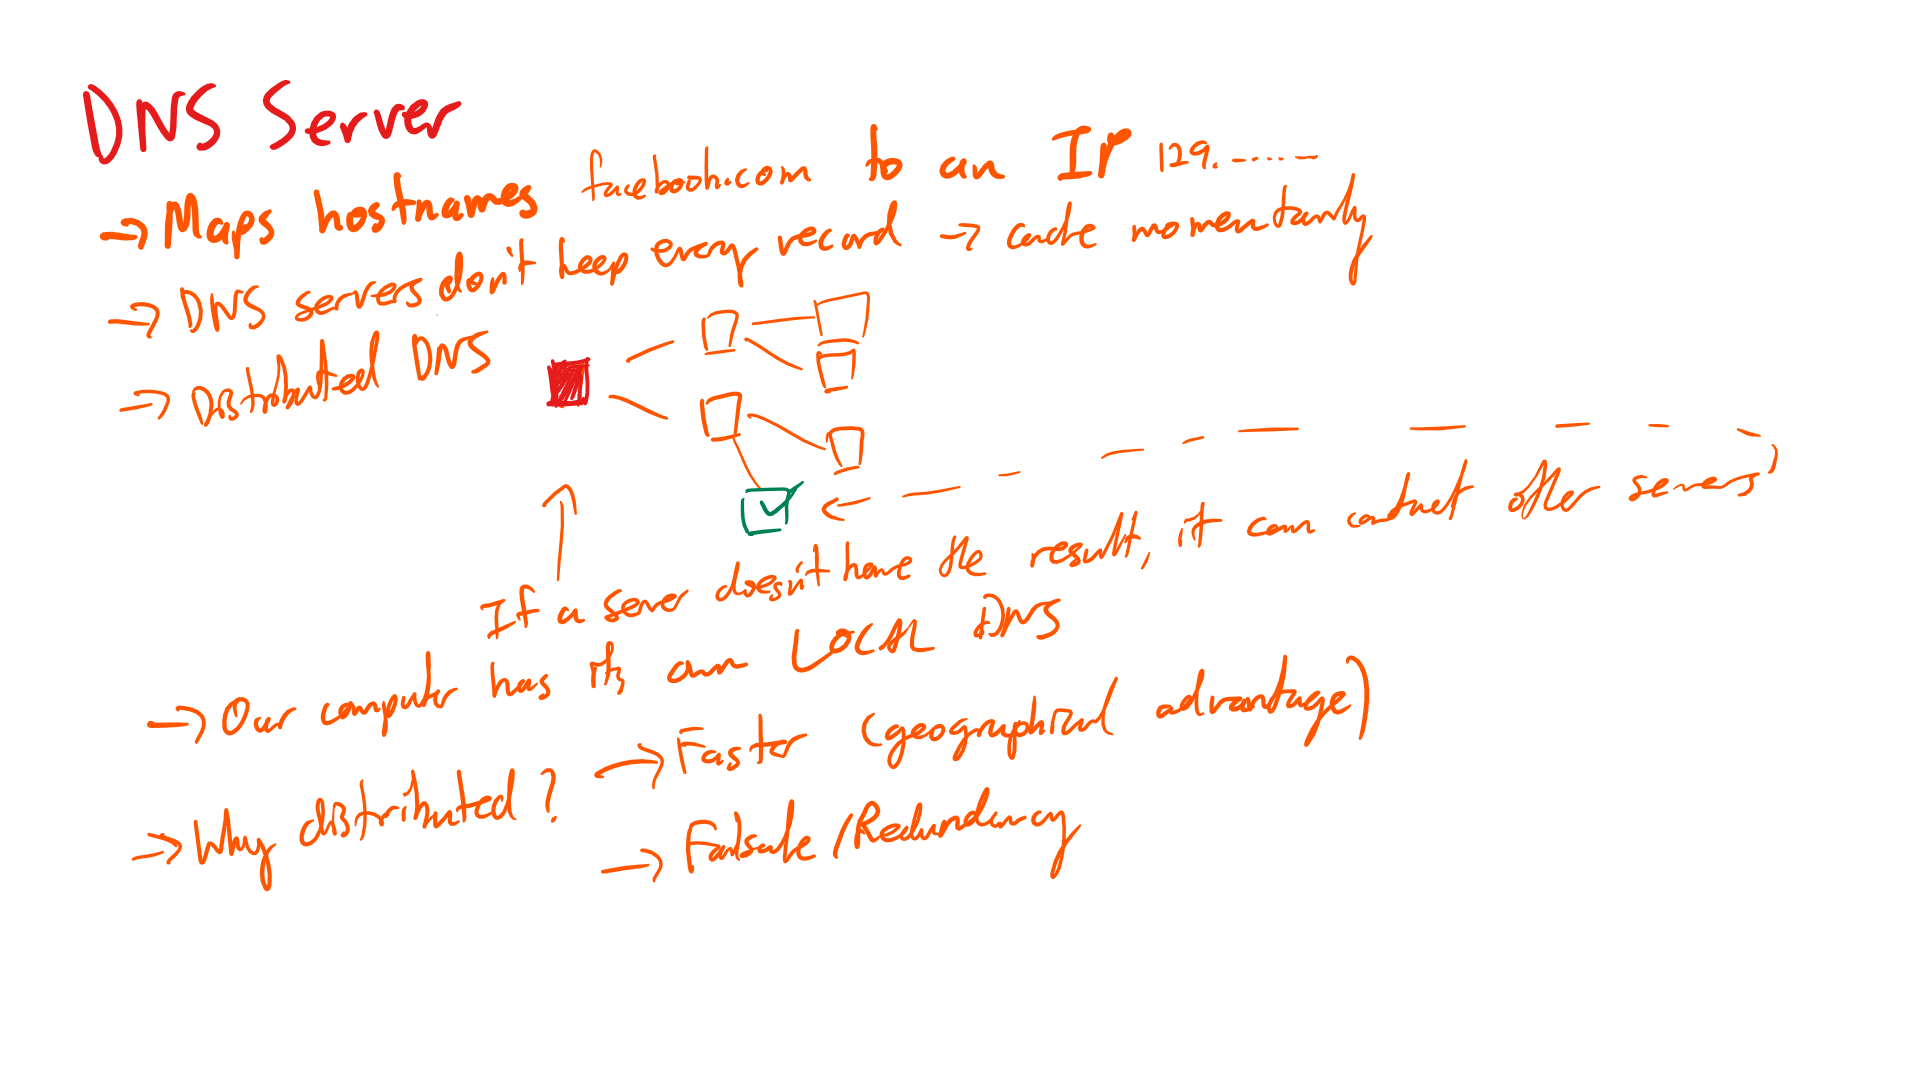 DNS Server
→ Maps hostnames facebook.com to an IP 129. .......
→ DNS servers don't keep every record → cache momentarily
→ Distributed DNS
If a server doesn't have the result, it can contact other servers
→ Our computer has its own LOCAL DNS
→ Why distributed? → Faster (geographical advantage)
→ Failsafe / Redundancy